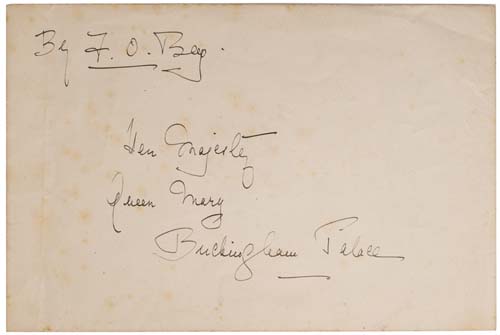 By F. O. Bag.
Her Majesty
Queen Mary
Buckingham Palace